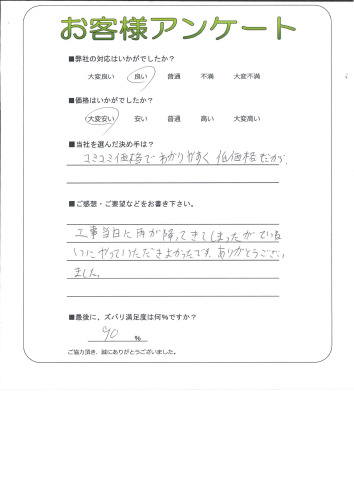 お客様アンケート
■弊社の対応はいかがでしたか?
大変良い 良い 普通 不満 大変不満
■価格はいかがでしたか?
大変安い 安い 普通 高い 大変高い
■当社を選んだ決め手は?
コミコミ価格でわかりやすく低価格だから
■ご感想・ご要望などをお書き下さい。
工事当日に雨が降ってきてしまったがていね
いにやっていただきよかったです。ありがとうござい
ました。
■最後に、ズバリ満足度は何%ですか?
90 %
ご協力頂き、誠にありがとうございました。